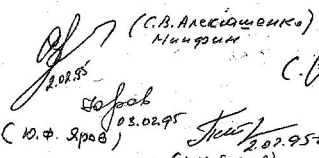 (С.В. Алексашенко)
Минфин
2.02.95
С.
Яров
03.02.95
(Ю.Ф. Яров)
2.02.95г